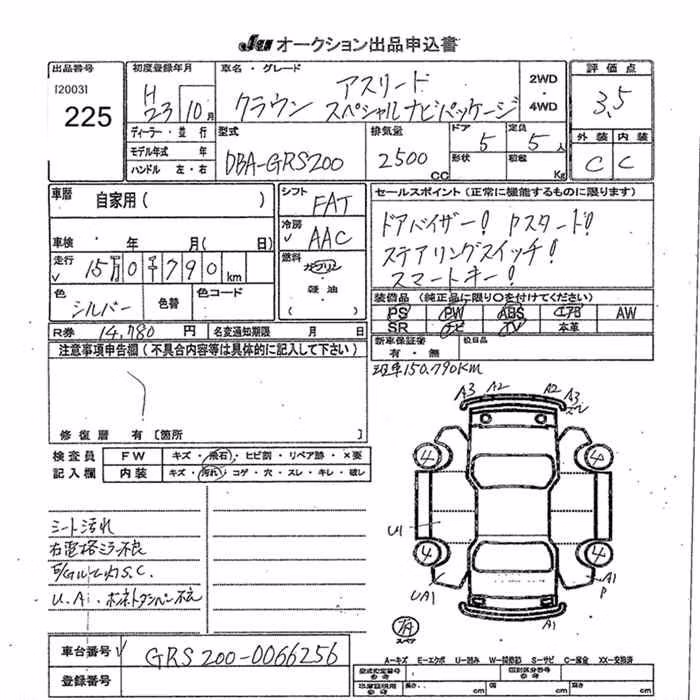 JU オークション出品申込書
出品番号
[2003]
225
初度登録年月
H
23 10月
ディーラー・並行
モデル年式 年
ハンドル 左・右
車名・グレード
アスリード
クラウン スペシャルナビパッケージ
2WD
4WD
型式
DBA-GRS200
排気量
2500 CC
ドア 5
定員 5人
形状
積載 Kg
評価点
3.5
外装 内装
C C
車歴 自家用( )
車検 年 月( 日)
走行 15万0千790km
色 シルバー 色替 色コード
シフト FAT
冷房 AAC
燃料 ガソリン
軽油
( )
セールスポイント(正常に機能するものに限ります)
ドアバイザー! アスタード!
ステアリングスイッチ!
スマートキー!
装備品(純正品に限り○を付けてください)
PS PW ABS エアB AW
SR ナビ TV 本革
新車保証書
有・無
R券 14,780円 名変通知期限 月 日
注意事項申告欄(不具合内容等は具体的に記入して下さい)
修復歴 有〔箇所 〕
現車150.790KM
検査員 FW キズ・飛石・ヒビ割・リペア跡・×要
記入欄 内装 キズ・汚れ・コゲ・穴・スレ・キレ・破し
シート汚れ
右電格ミラー不良
S.C.
U.Ai. ボンネットダンパー不良
A3 A2 A2 A3
スレ
4 4
U1
4 4
UA1 A1
P
A1
TA
スペア
車台番号 GRS200-0066256
登録番号
A-キズ E-エクボ U-凹み W-補修跡 S-サビ C-腐食 XX-交換済
cm cm cm